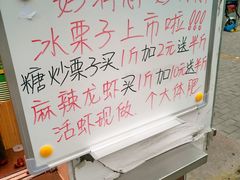 冰栗子上市啦!!!
糖炒栗子买1斤加2元送半斤
麻辣龙虾买1斤加10元送半斤
活虾现做.个大体肥